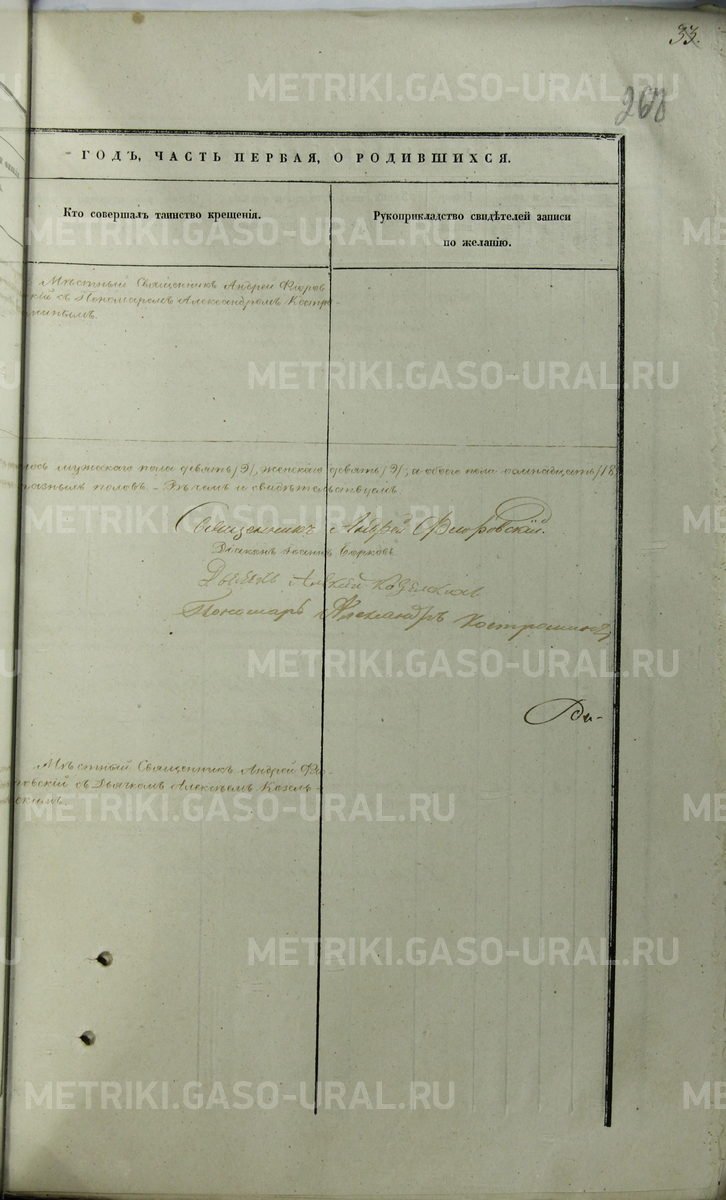 33.
268
ГОДЪ, ЧАСТЬ ПЕРВАЯ, О РОДИВШИХСЯ.
Кто совершалъ таинство крещенія.
Рукоприкладство свидѣтелей записи
по желанію.
Мѣстный Священникъ Андрей Флоров
скій съ Пономаремъ Александромъ Костро-
минымъ.
лось мужескаго пола девять /9/, женскаго девять /9/, а обоего пола восемнадцать /18
разныхъ половъ. – Въ чемъ и свидѣтельствуемъ
Священникъ Андрей Флоровскій.
Діаконъ Іоаннъ
Дьячекъ Алексѣй Козельскій
Пономарь Александръ Костроминъ
Мѣстный Священникъ Андрей Фло-
ровскій съ Дьячкомъ Алексѣемъ Козель-
скимъ.
METRIKI.GASO-URAL.RU